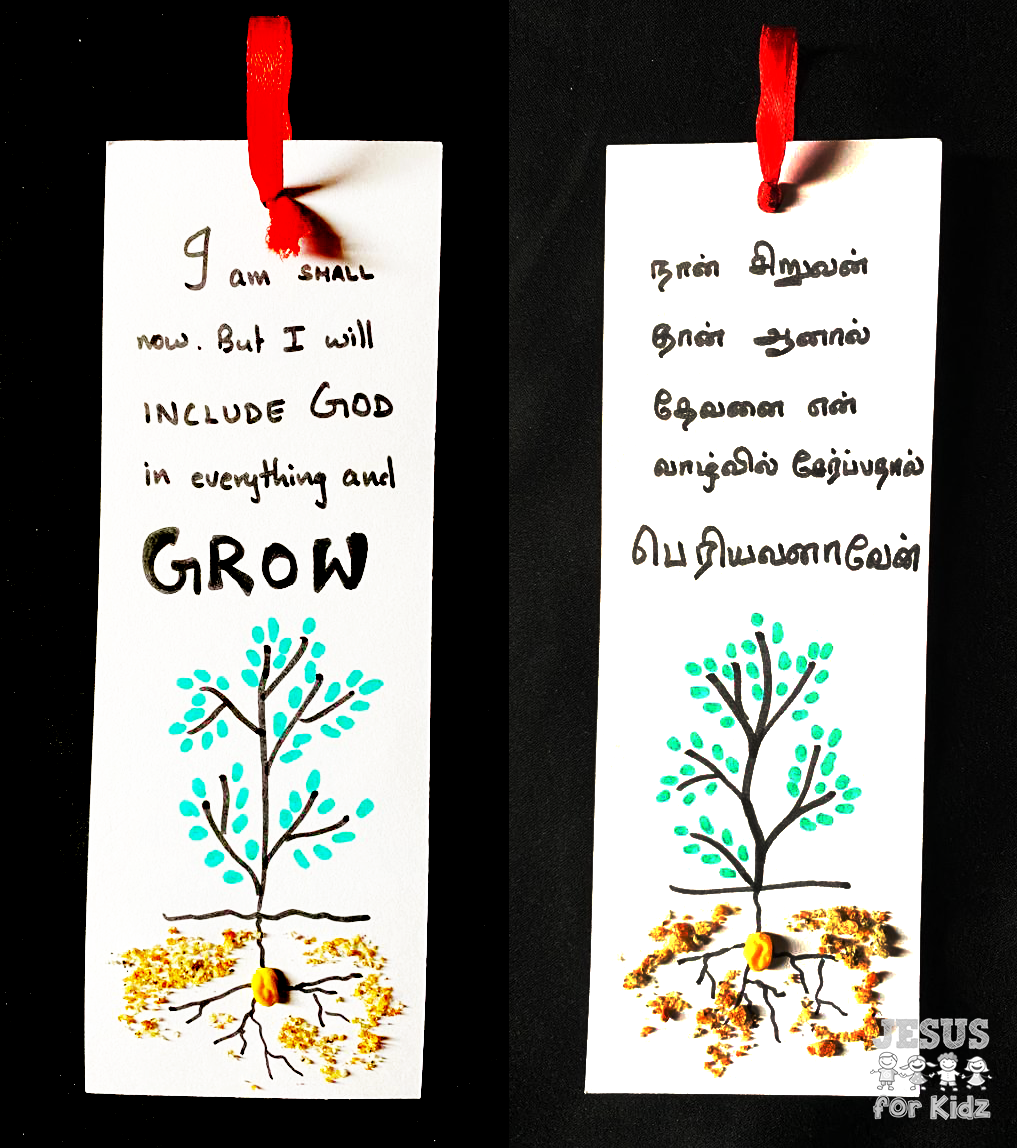 I am SMALL
now. But I will
INCLUDE GOD
in everything and
GROW
நான் சிறுவன்
தான் ஆனால்
தேவனை என்
வாழ்வில் சேர்ப்பதால்
பெரியவனாவேன்
JESUS
for Kidz